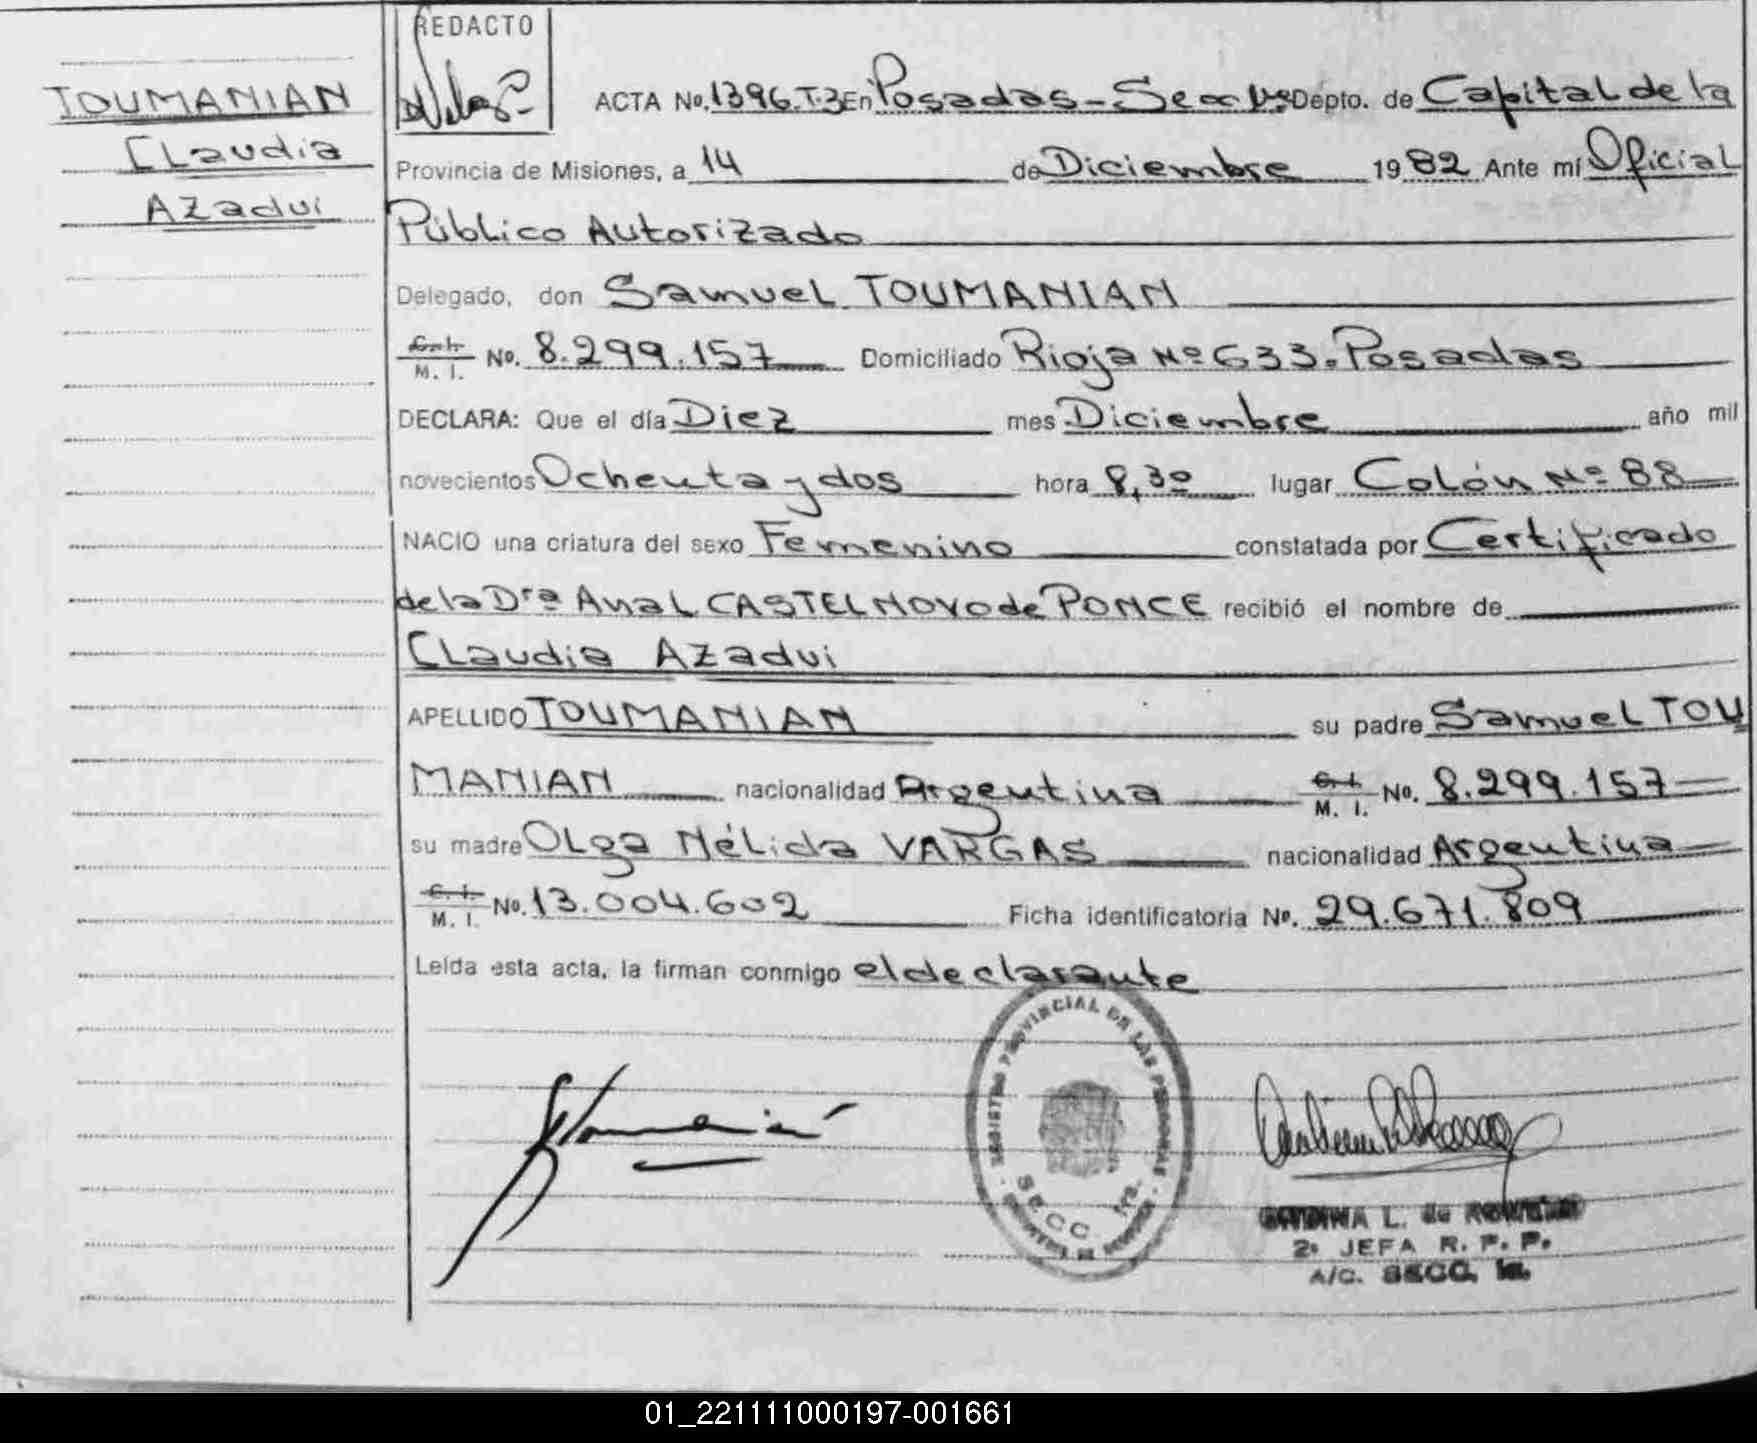 REDACTO
TOUMANIAN
Claudia
Azadui
ACTA No. 1396.T.3 En Posadas - Secc 1ª Depto. de Capital de la
Provincia de Misiones, a 14 de Diciembre 1982 Ante mí Oficial
Público Autorizado
Delegado, don Samuel TOUMANIAN
C. I. / M. I. No. 8.299.157 Domiciliado Rioja Nº 633. Posadas
DECLARA: Que el día Diez mes Diciembre año mil
novecientos Ochenta y dos hora 8,30 lugar Colón Nº 88
NACIO una criatura del sexo Femenino constatada por Certificado
de la Drª Ana L CASTELNOVO de PONCE recibió el nombre de
Claudia Azadui
APELLIDO TOUMANIAN su padre Samuel TOU
MANIAN nacionalidad Argentina C. I. / M. I. No. 8.299.157
su madre Olga Nélida VARGAS nacionalidad Argentina
C. I. / M. I. No. 13.004.602 Ficha identificatoria No. 29.671.809
Leída esta acta, la firman conmigo el declarante
REGISTRO PROVINCIAL DE LAS PERSONAS
SECC. 1ra.
L. de
2ª JEFA R. P. P.
A/C. SECC. 1a.
01_221111000197-001661